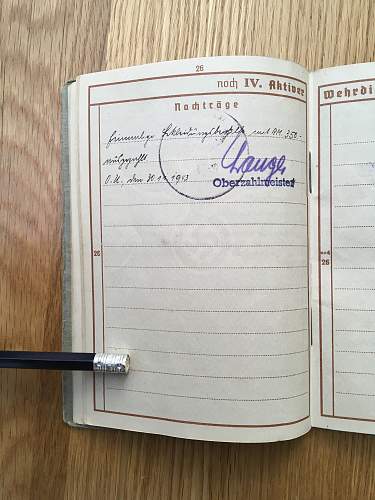 26
noch IV. Aktiver
Wehrdi
Nachträge
Einmalige Bekleidungsbeihilfe mit RM 350.-
ausgezahlt
O.U. den 30.11.1943
Lange
Oberzahlmeister
26
noch
26